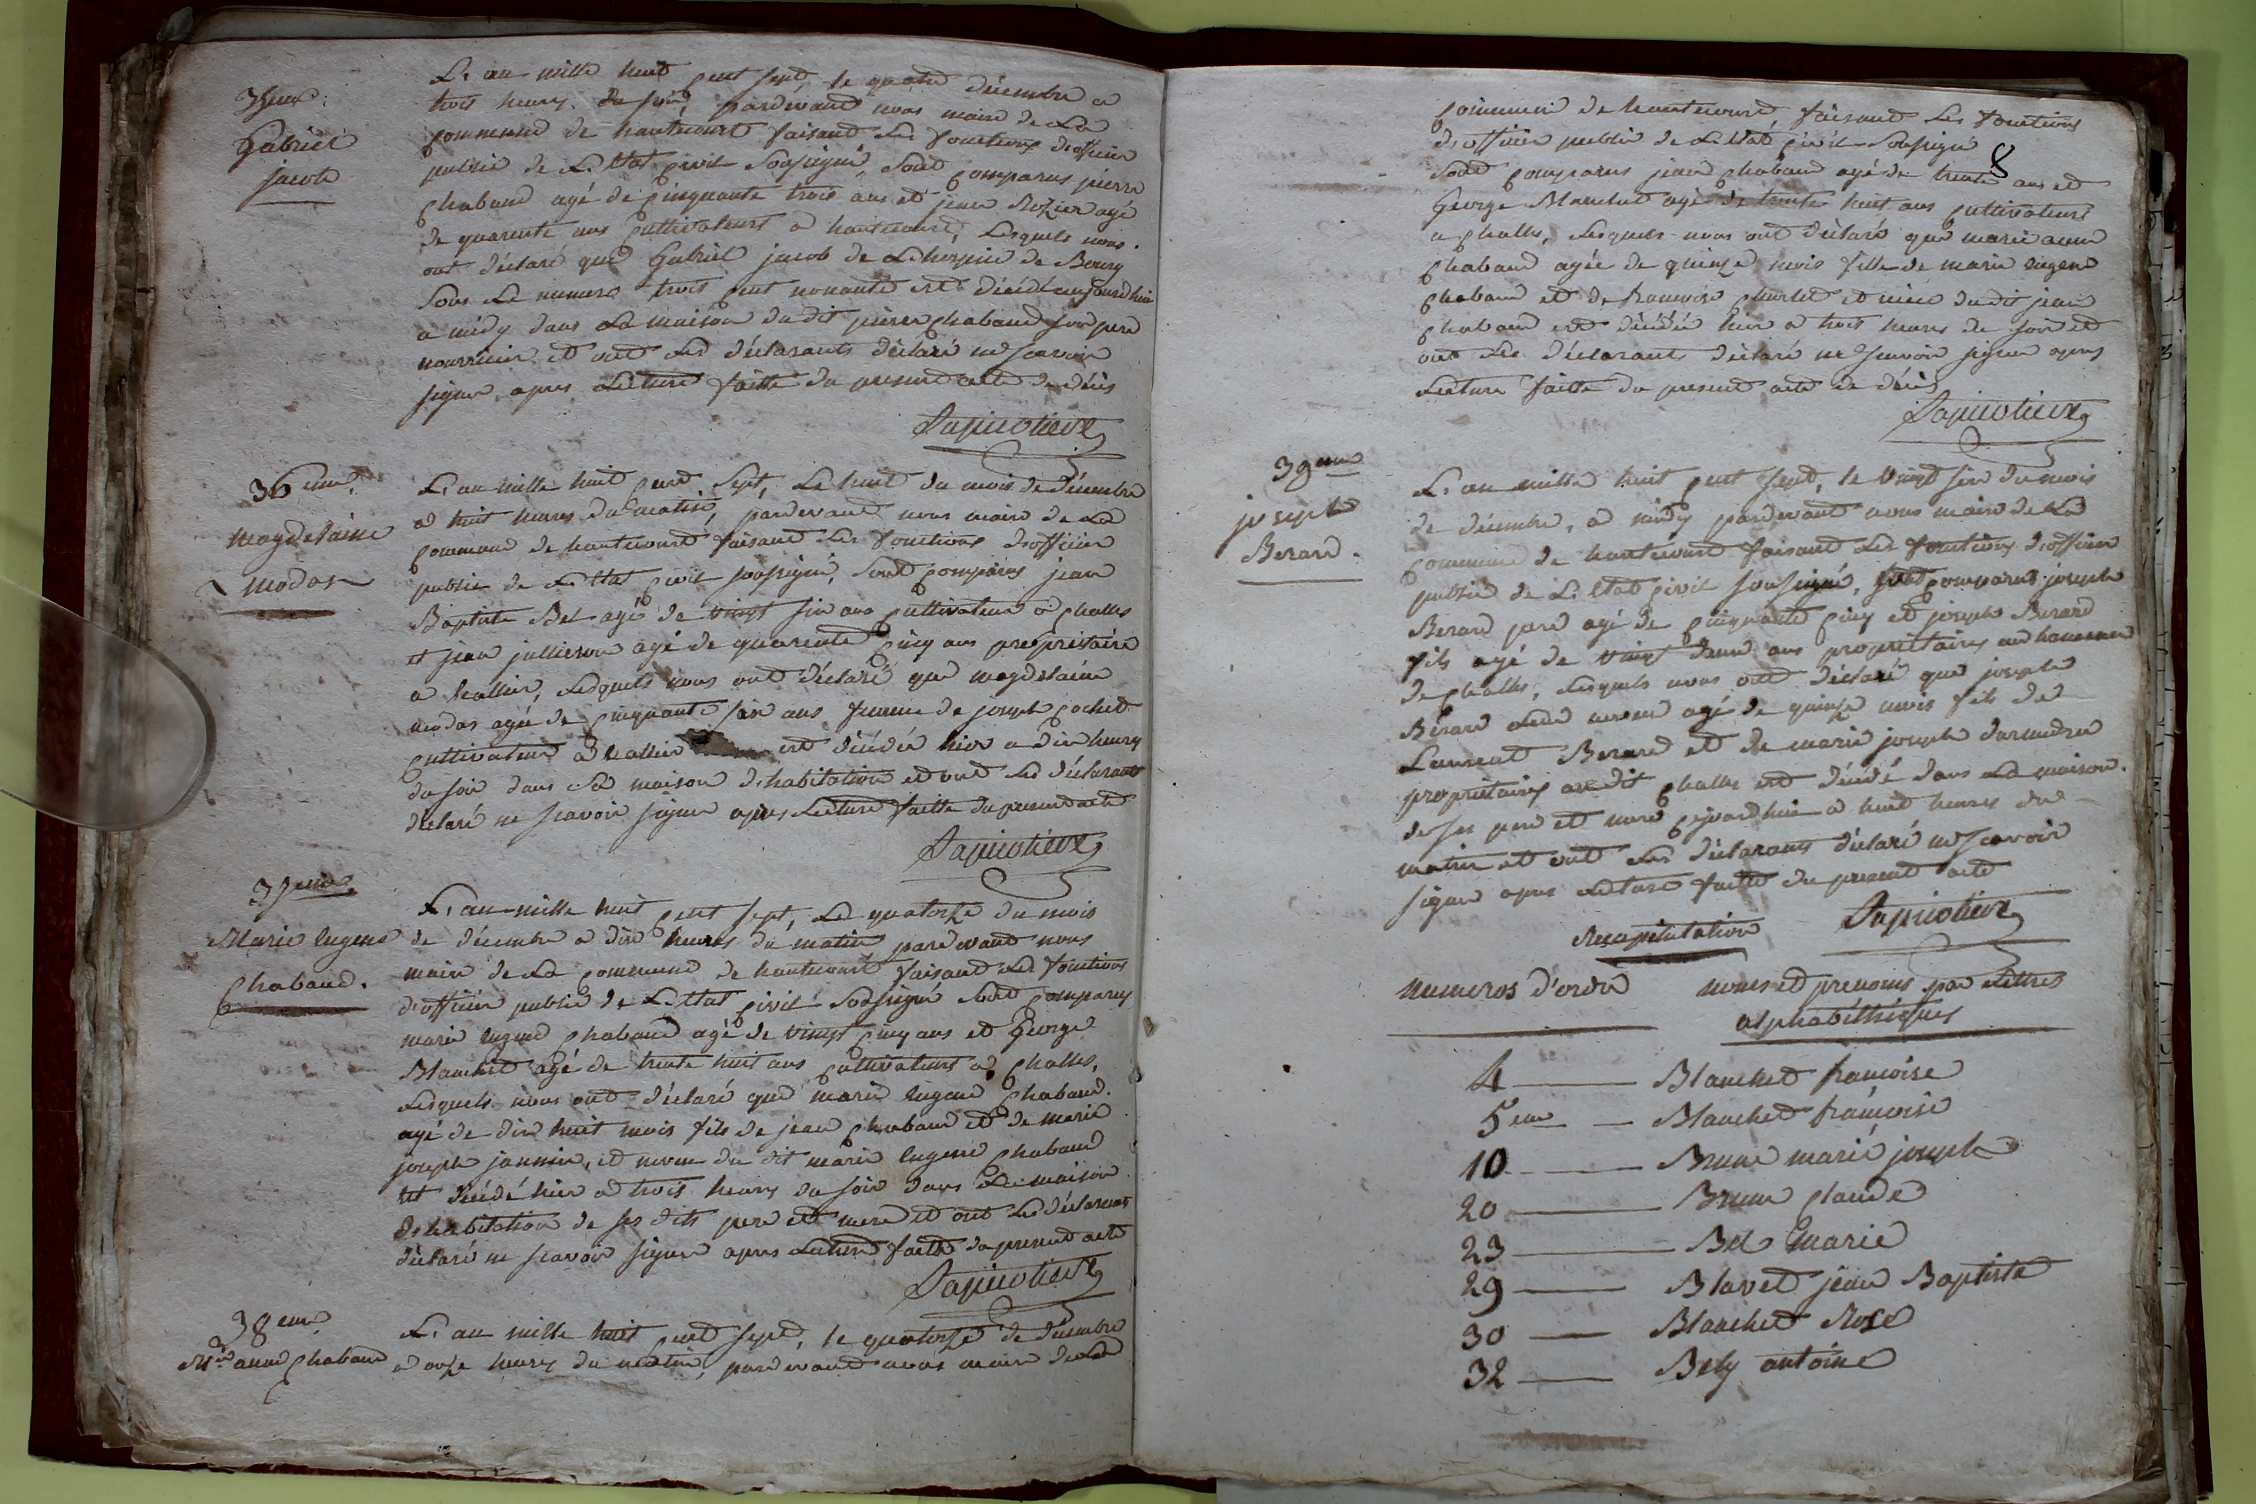 35eme
Gabriel
jacob
L'an mille huit cent sept, le quatre décembre a
trois heures du soir, pardevant nous maire de La
commune de hautecourt faisant Les fonctions d'officier
public de L'Etat civil soussigné, sont comparus pierre
Chaband agé de cinquante trois ans et jean Rozier agé
de quarente ans cultivateurs a hautecourt, Lesquels nous
ont déclaré que Gabriel jacob de L'hospice de Bourg
sous Le numero trois cent nonante est décédé aujourd'hui
a midy dans La maison du dit pierre Chaband son pere
nourricier et ont Les déclarants déclaré ne scavoir
signer apres Lecture faitte du present acte de décès
36eme
Magdelaine
modas
L'an mille huit cent sept, Le huit du mois de décembre
a huit heures du matin, pardevant nous maire de La
commune de hautecourt faisant Les fonctions d'officier
public de L'Etat civil soussigné, sont comparus jean
Baptiste Bel agé de vingt six ans cultivateur a Challes
et jean jullieron agé de quarente cinq ans propriétaire
a hallier, Lesquels nous ont déclaré que magdelaine
modas agée de cinquante six ans femme de joseph Cochet
cultivateur a hallier est décédée hier a dix heures
du soir dans Sa maison d'habitation et ont Les déclarants
déclaré ne scavoir signer apres Lecture faitte du present acte
37eme
Marie Eugene
Chaband.
L'an mille huit cent sept, Le quatorze du mois
de décembre a dix heures du matin pardevant nous
maire de La commune de hautecourt faisant Les fonctions
d'officier public de L'Etat civil soussigné sont comparus
marie Eugene Chaband agé de vingt cinq ans et George
Blanchet agé de trente huit ans cultivateurs a Challes,
Lesquels nous ont déclaré que marie Eugene Chaband
agé de dix huit mois fils de jean Chaband et de marie
joseph jannin, et neveu du dit marie Eugene Chaband
est décédé hier a trois heures du soir dans La maison
d'habitation de ses dits pere et mere et ont Les déclarants
déclaré ne scavoir signer apres Lecture faitte du present acte
38eme
Mie anne Chaband
L'an mille huit cent sept, le quatorze de décembre
a onze heures du matin, pardevant nous maire de La
8
commune de hautecourt, faisant Les fonctions
d'officier public de L'Etat civil soussigné
sont comparus jean Chaband agé de trente ans et
George Blanchet agé de trente huit ans cultivateurs
a Challes, Lesquels nous ont déclaré que marie anne
Chaband agée de quinze mois fille de marie Eugene
Chaband et de francoise et niéce du dit jean
Chaband est décédée hier a trois heures de soir et
ont Les déclarants déclaré ne scavoir signer apres
Lecture faitte du present acte de décès
39eme
joseph
Berard.
L'an mille huit cent sept, le vingt six du mois
de décembre, a midy pardevant nous maire de La
commune de hautecourt faisant Les fonctions d'officier
public de L'Etat civil soussigné, sont comparus joseph
Berard pere agé de cinquante cinq et joseph Berard
fils agé de vingt deux ans propriétaires au hameau
de Challes, Lesquels nous ont déclaré que joseph
Berard Leur neveu agé de quinze mois fils de
Laurent Berard et de marie joseph
propriétaires au dit Challes est décédé dans La maison
de ses pere et mere cejourdhui a huit heures du
matin et ont Les déclarants déclaré ne scavoir
signer apres Lecture faitte du present acte
Recapitulation
Numeros d'ordre noms et prenoms par Lettres
alphabéthiques
4 Blanchet francoise
5eme Blanchet francoise
10 Brun marie joseph
20 Brun Claude
23 Bel marie
29 Blavet jean Baptiste
30 Blanchet Rose
32 Bely antoine